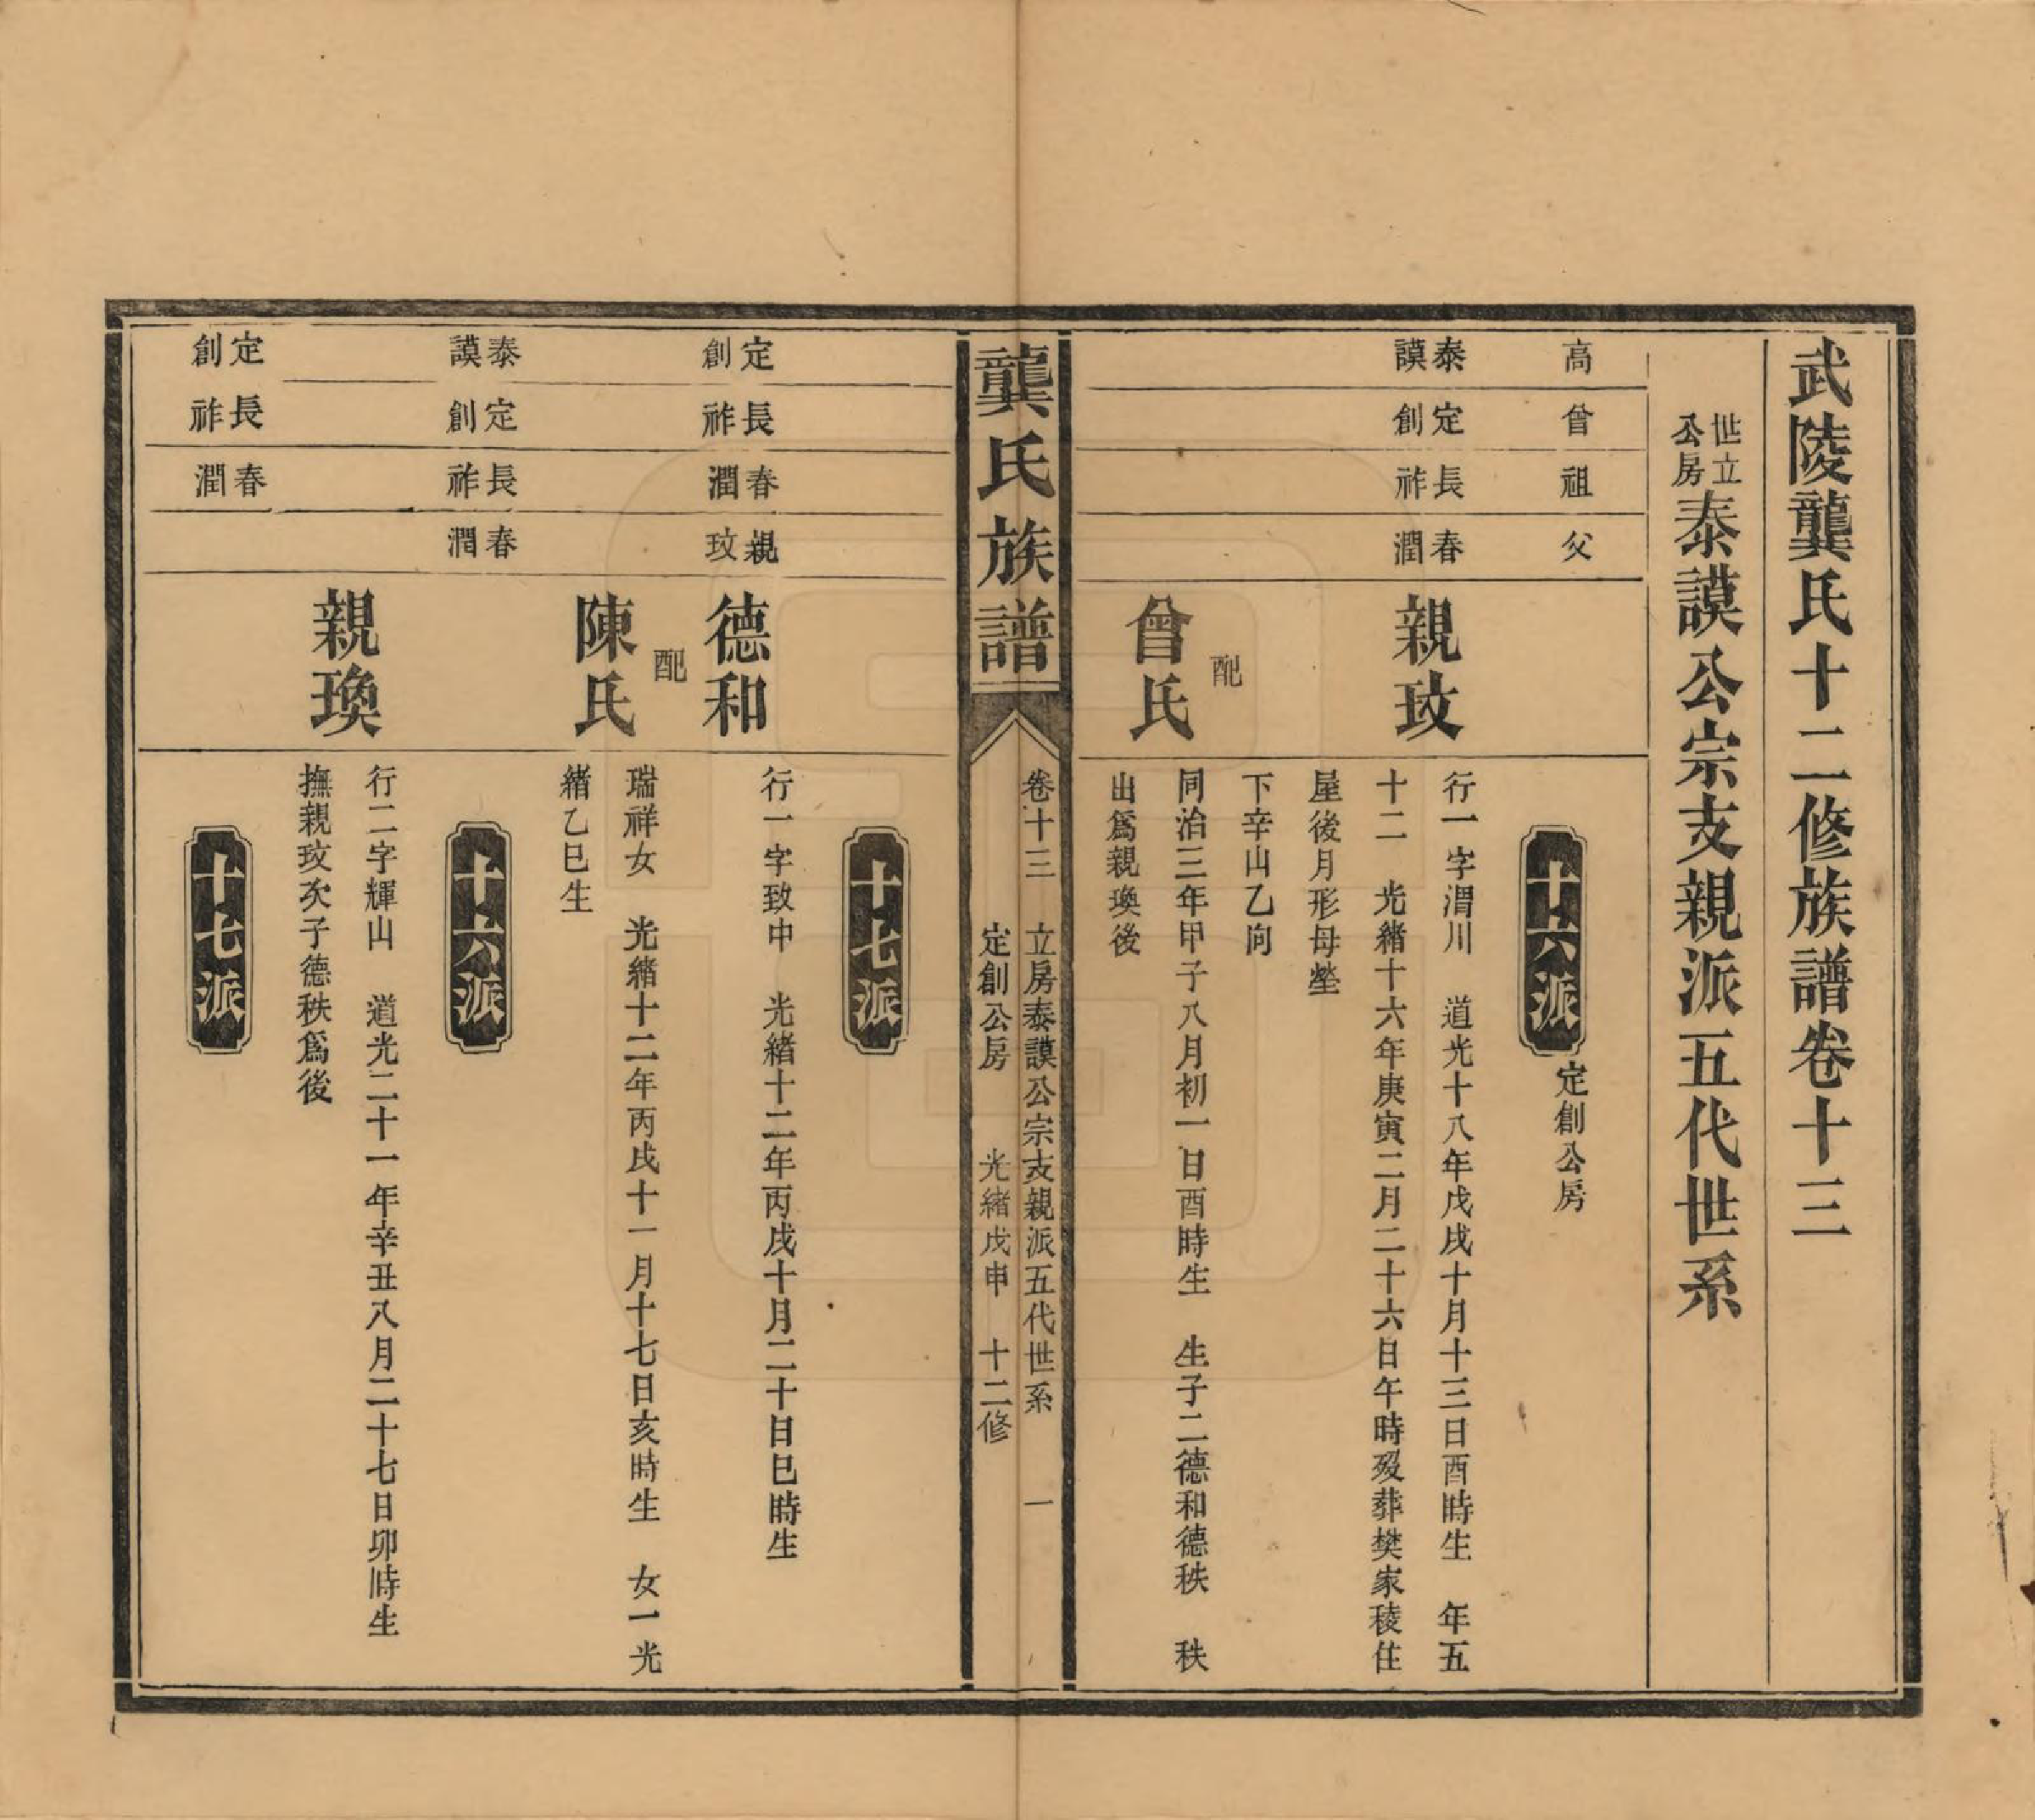 武陵龔氏十二修族譜卷十三
世立公房泰謨公宗支親派五代世系
高
曾
祖
父
十六派
定創公房
泰謨
定創
長祚
春潤
親玟
行一字渭川　道光十八年戊戌十月十三日酉時生　年五
十二　光緒十六年庚寅二月二十六日午時歿葬樊家稜住
屋後月形母塋
下辛山乙向
配
曾氏
同治三年甲子八月初一日酉時生　生子二德和德秩　秩
出爲親瑍後
龔氏族譜
卷十三　立房泰謨公宗支親派五代世系　一
定創公房　光緒戊申　十二修
十七派
定創
長祚
春潤
親玟
德和
行一字致中　光緒十二年丙戌十月二十日巳時生
配
陳氏
瑞祥女　光緒十二年丙戌十一月十七日亥時生　女一光
緒乙巳生
十六派
泰謨
定創
長祚
春潤
親瑍
行二字輝山　道光二十一年辛丑八月二十七日卯時生
撫親玟次子德秩爲後
十七派
定創
長祚
春潤